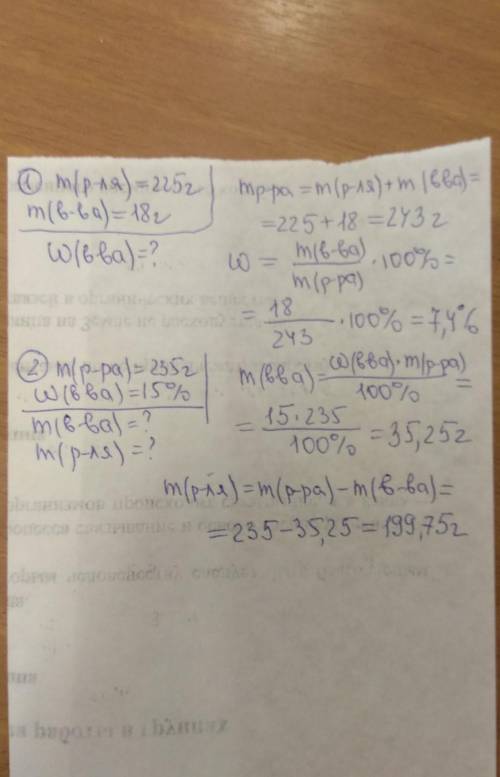 ① m(р-ля)=225г
m(в-ва)=18г
ω(в-ва)=?
mр-ра=m(р-ля)+m(вва)=
=225+18=243г
ω = m(в-ва)/m(р-ра) · 100%=
= 18/243 · 100% = 7,4%
② m(р-ра)=235г
ω(вва)=15%
m(вва)=?
m(р-ля)=?
m(вва)= ω(вва)·m(р-ра)/100% =
= 15·235/100% = 35,25г
m(р-ля)=m(р-ра)-m(в-ва)=
=235-35,25=199,75г